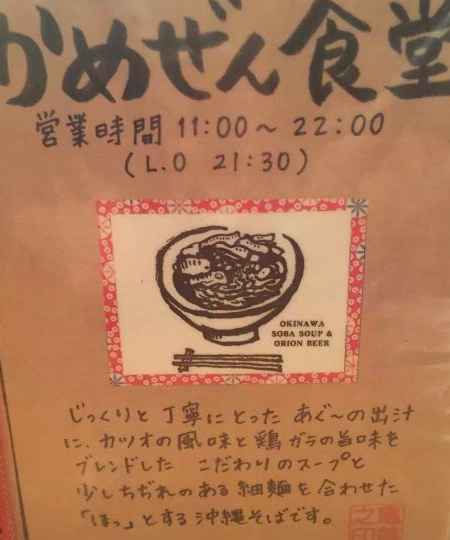 かめぜん食堂
営業時間 11:00〜22:00
(L.O 21:30)
OKINAWA
SOBA SOUP &
ORION BEER
じっくりと丁寧にとった あぐ〜の出汁
に、カツオの風味と鶏ガラの旨味を
ブレンドした こだわりのスープと
少しちぢれのある細麺を合わせた
「ほっ」とする沖縄そばです。